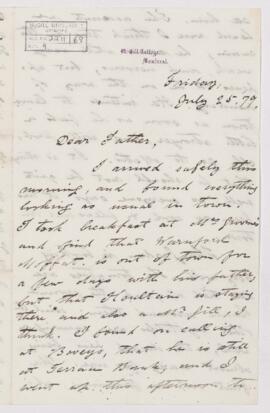 McGill College,
Montreal.
Friday,
July 25. 79.
Dear Father,
I arrived safely this
morning, and found everything
looking as usual in town.
I took breakfast at Mrs
and find that Warnford
Moffat is out of town for
a few days with his father,
but that is staying
there and also a Mr. Gill, I
think. I found on calling
at that he is still
at Terrace Bank, and I
went up this afternoon to